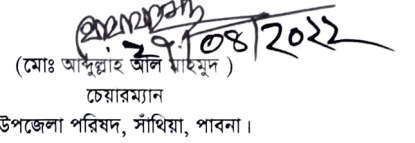 ২৭/০৪/২০২২
(মোঃ আব্দুল্লাহ আল মাহমুদ )
চেয়ারম্যান
উপজেলা পরিষদ, সাঁথিয়া, পাবনা।